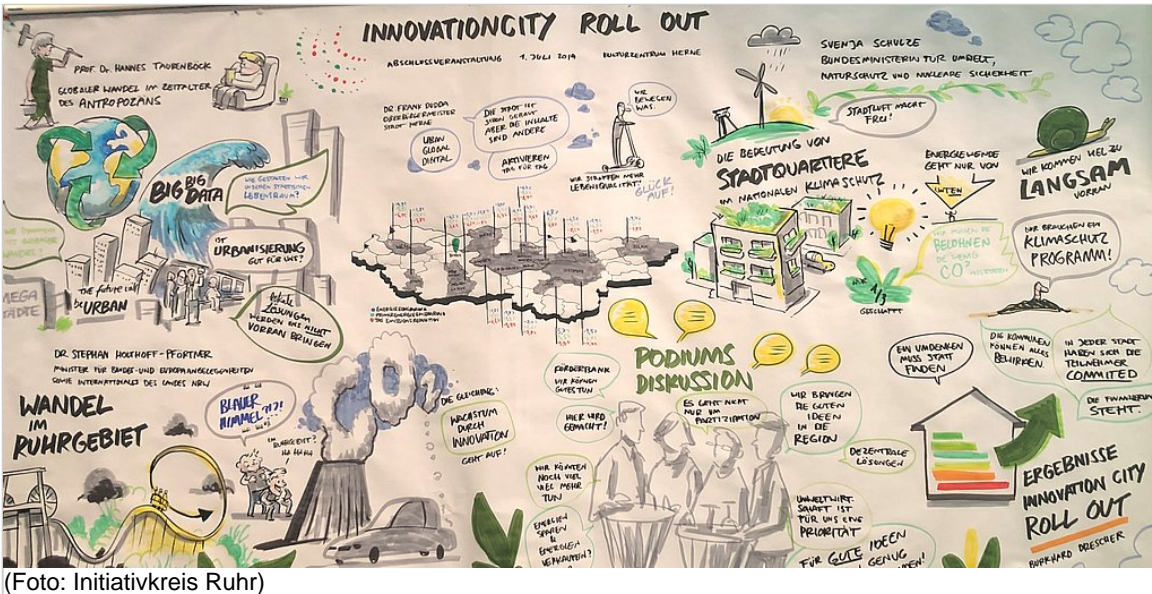 INNOVATIONCITY ROLL OUT
ABSCHLUSSVERANSTALTUNG 1. JULI 2019 KULTURZENTRUM HERNE
PROF. DR. HANNES TAUBENBÖCK
GLOBALER WANDEL IM ZEITALTER
DES ANTROPOZÄNS
BIG BIG
DATA
WIE GESTALTEN WIR
UNSEREN STÄDTISCHEN
LEBENSRAUM?
IST
URBANISIERUNG
GUT FÜR UNS?
MEGA
STÄDTE
THE FUTURE CAN
BE URBAN
LOKALE
LÖSUNGEN
WERDEN UNS NICHT
VORRAN BRINGEN
DR. FRANK DUDDA
OBERBÜRGERMEISTER
STADT HERNE
URBAN
GLOBAL
DIGITAL
DIE STADT IST
SCHON GEBAUT
ABER DIE INHALTE
SIND ANDERE
AKTIVIEREN
TAG FÜR TAG
WIR
BEWEGEN
WAS.
WIR STIFTEN MEHR
LEBENSQUALITÄT!
GLÜCK
AUF!
SVENJA SCHULZE
BUNDESMINISTERIN FÜR UMWELT,
NATURSCHUTZ UND NUKLEARE SICHERHEIT
STADTLUFT MACHT
FREI!
DIE BEDEUTUNG VON
STADTQUARTIERE
IM NATIONALEN KLIMASCHUTZ
ENERGIEWENDE
GEHT NUR VON
UNTEN
WIR MÜSSEN DIE
BELOHNEN
DIE WENIG
CO²
1/3
GESCHAFFT
WIR KOMMEN VIEL ZU
LANGSAM
VORRAN
WIR BRAUCHEN EIN
KLIMASCHUTZ
PROGRAMM!
DR. STEPHAN HOLTHOFF-PFÖRTNER
MINISTER FÜR BUNDES- UND EUROPAANGELEGENHEITEN
SOWIE INTERNATIONALES DES LANDES NRW
WANDEL
IM
RUHRGEBIET
BLAUER
HIMMEL?!?!
IM
RUHRGEBIET?
HA HA HA
CO²
DIE GLEICHUNG:
WACHSTUM
DURCH
INNOVATION
GEHT AUF!
PODIUMS
DISKUSSION
FÖRDERBANK
WIR KÖNNEN
GUTES TUN
HIER WIRD
GEMACHT!
ES GEHT NICHT
NUR UM
PARTIZIPATION
WIR BRINGEN
DIE GUTEN
IDEEN
IN DIE
REGION
DEZENTRALE
LÖSUNGEN
WIR KÖNNTEN
NOCH VIEL
VIEL MEHR
TUN
ENERGIEN
SPAREN
&
ENERGIEN
VERKAUFEN?
UMWELTWIRT-
SCHAFT IST
FÜR UNS EINE
PRIORITÄT
FÜR GUTE IDEEN
GENUG
EIN UMDENKEN
MUSS STATT
FINDEN
DIE KOMMUNEN
KÖNNEN ALLES
BEWIRKEN.
IN JEDER STADT
HABEN SICH DIE
TEILNEHMER
COMMITED
DIE FINANZIERUNG
STEHT.
ERGEBNISSE
INNOVATION CITY
ROLL OUT
BURKHARD DRESCHER
(Foto: Initiativkreis Ruhr)